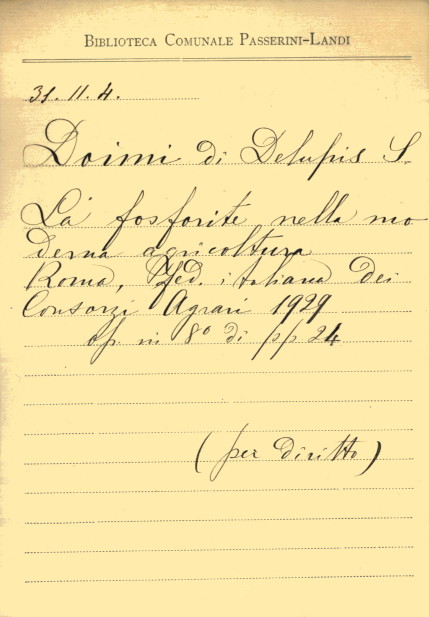 BIBLIOTECA COMUNALE PASSERINI-LANDI
31. 11. 4.
Doimi di Delupis S.
La fosforite nella mo
derna agricoltura
Roma, Fed. italiana dei
Consorzi Agrari 1929
op. in 8º di pp 24
(per diritto)